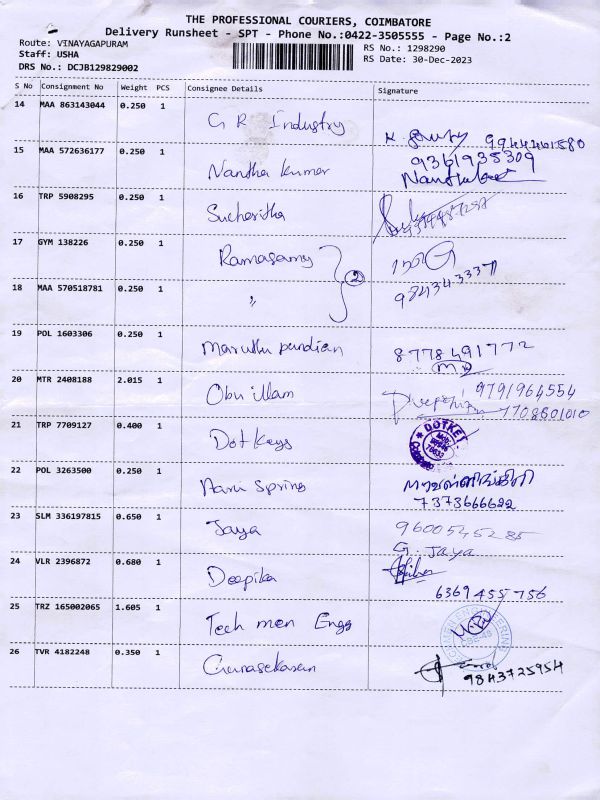 THE PROFESSIONAL COURIERS, COIMBATORE
Delivery Runsheet - SPT - Phone No.:0422-3505555 - Page No.:2
Route: VINAYAGAPURAM
Staff: USHA
DRS No.: DCJB129829002
RS No.: 1298290
RS Date: 30-Dec-2023
S No Consignment No Weight PCS Consignee Details Signature
14 MAA 863143044 0.250 1 G R Industry 9944461580
15 MAA 572636177 0.250 1 Nantha Kumar 9361935309
16 TRP 5908295 0.250 1 Sucharitha
17 GYM 138226 0.250 1 Ramasamy
2
18 MAA 570518781 0.250 1 " 98434 33371
19 POL 1603306 0.250 1 Maruthu pandian 8778491772
20 MTR 2408188 2.015 1 Obu illam 9791964554
7708601010
21 TRP 7709127 0.400 1 Dot Keys DOTKET
22 POL 3263500 0.250 1 Spring
7373666622
23 SLM 336197815 0.650 1 Jaya 9600545285
G. Jaya
24 VLR 2396872 0.680 1 Deepika
6369455756
25 TRZ 165002065 1.605 1 Tech men Engg
26 TVR 4182248 0.350 1 Gunasekaran
9843725954